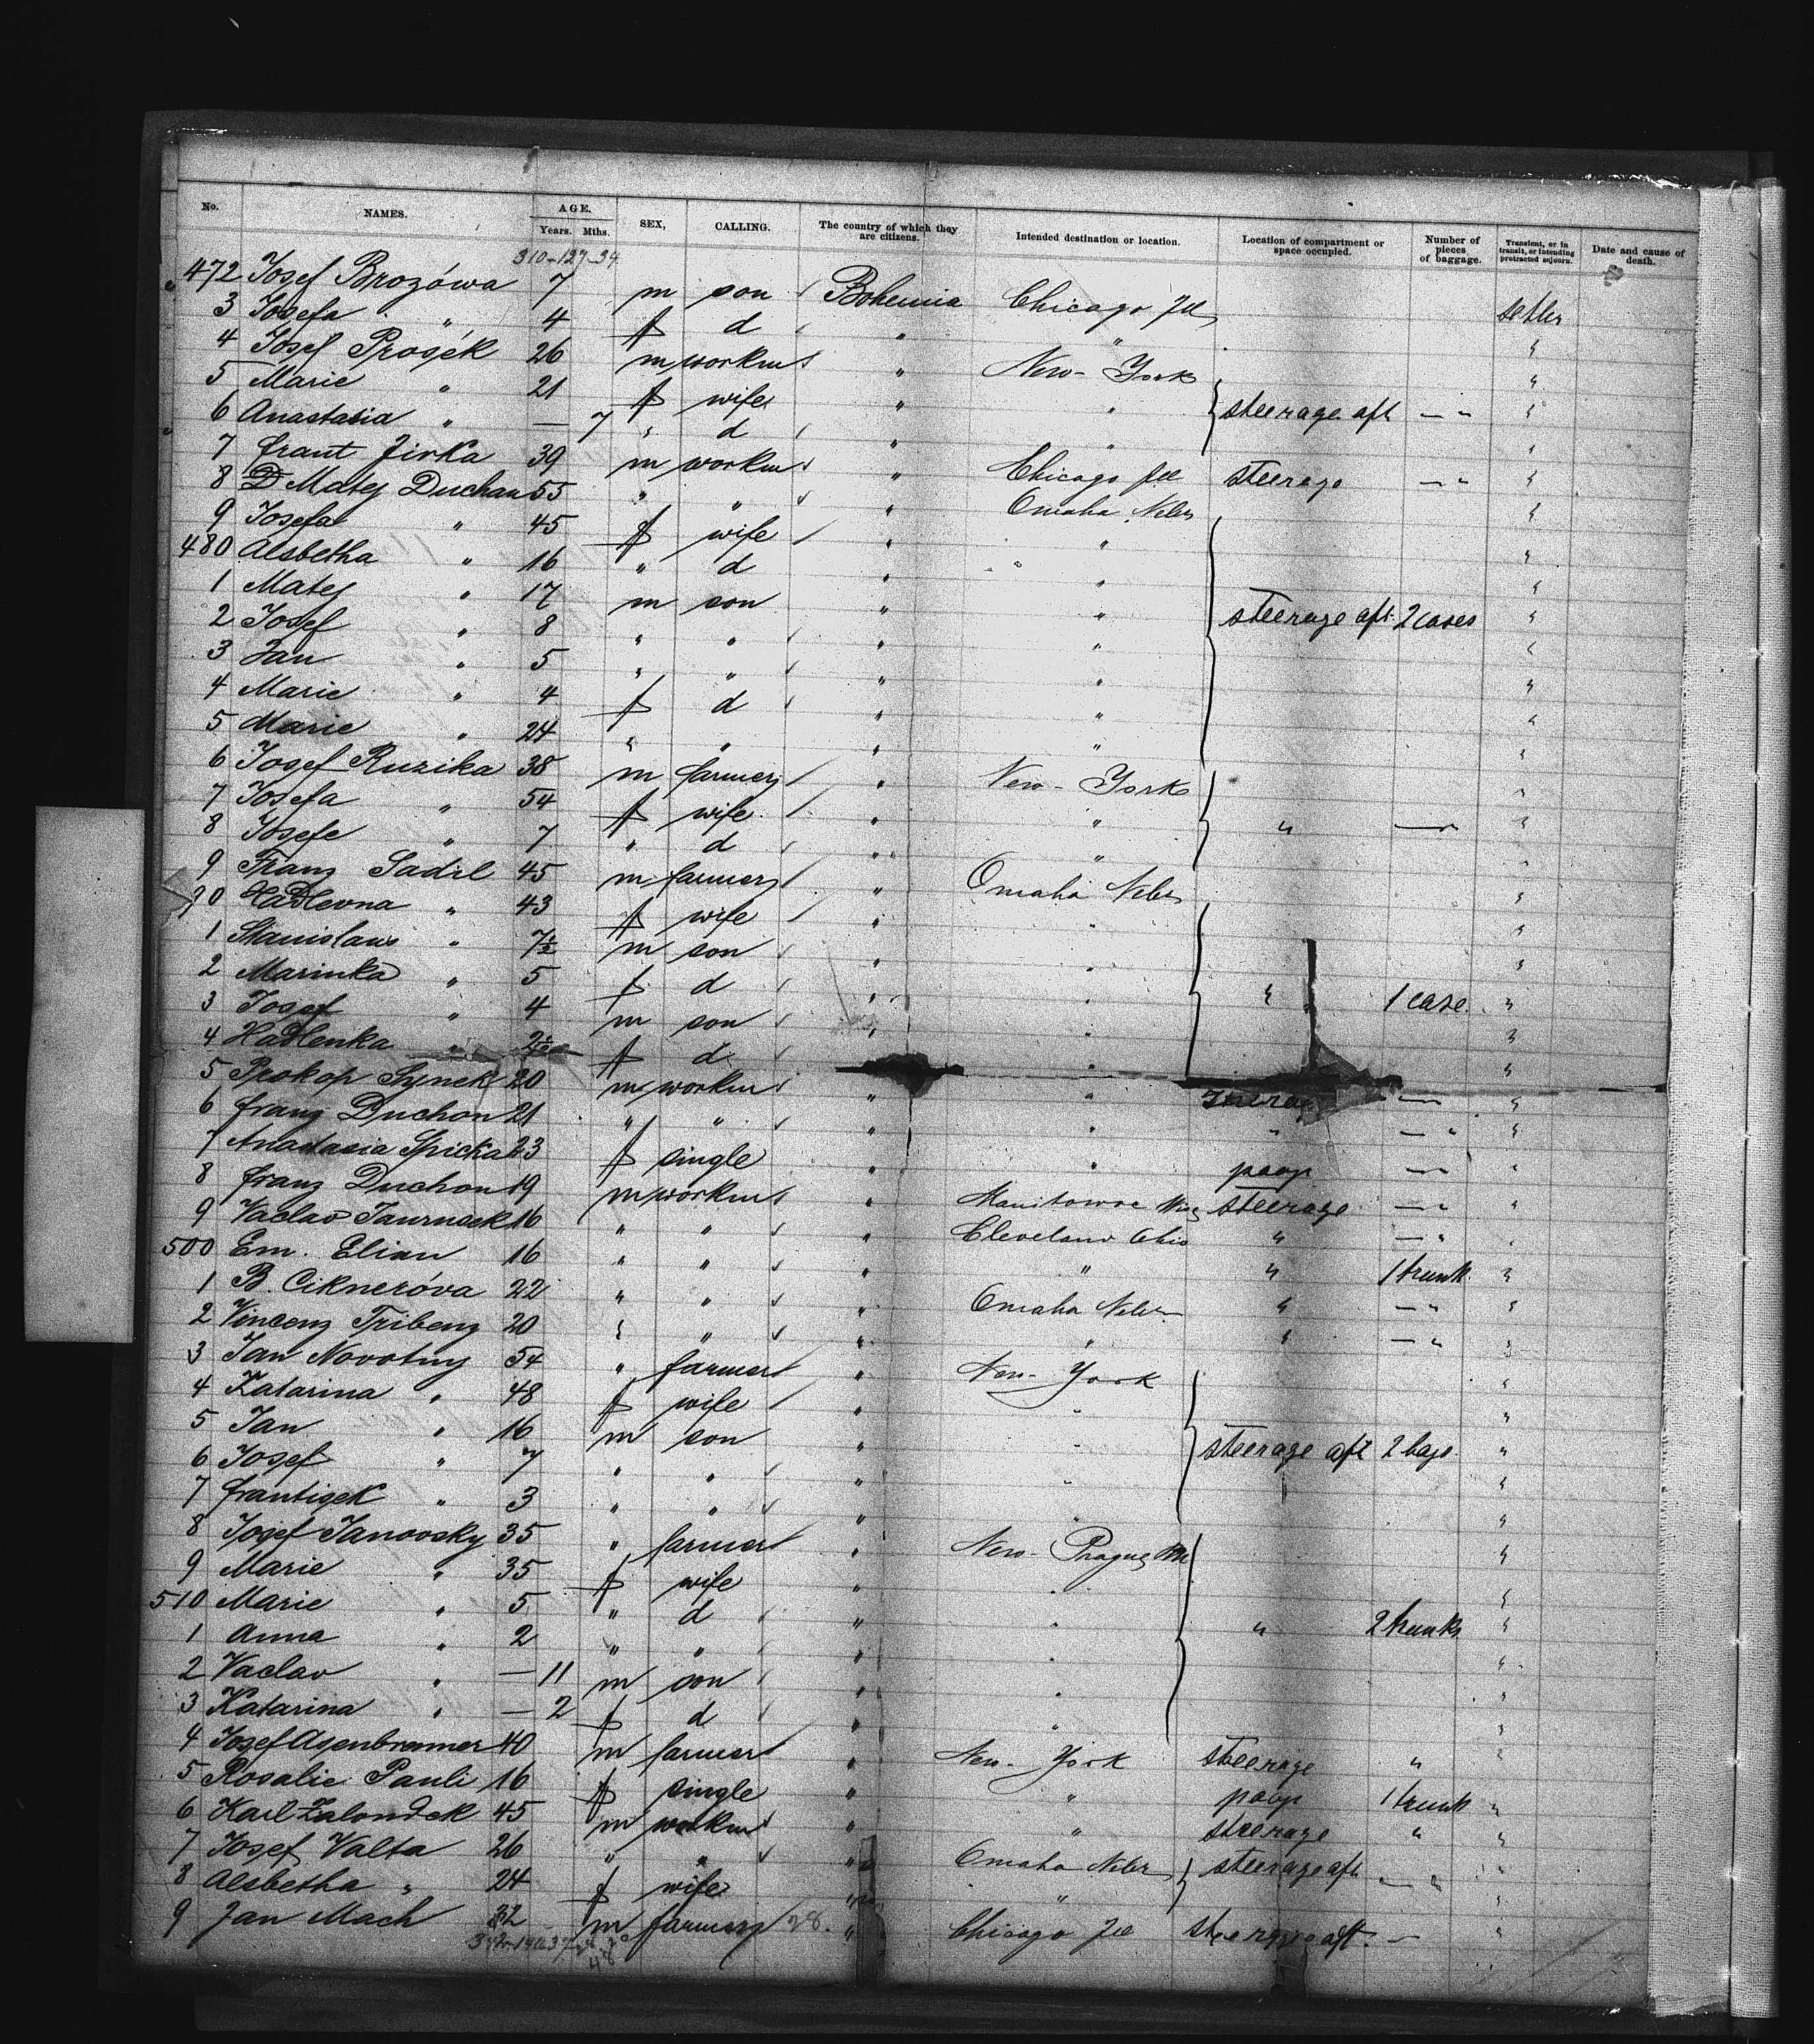 No. NAMES. AGE. Years. Mths. SEX, CALLING. The country of which they are citizens. Intended destination or location. Location of compartment or space occupied. Number of pieces of baggage. Transient, or in transit, or intending protracted sojourn. Date and cause of death.
310-127-34
472 Josef Brozówa 7 m son Bohemia Chicago Ill settler
3 Josefa " 4 f d " " "
4 Josef Prosek 26 m workm " New-York "
5 Marie " 21 f wife " " steerage aft — " "
6 Anastasia " — 7 " d " " "
7 frant Jirka 39 m workm " Chicago Ill steerage — " "
8 D Matej Duchan 55 " " " Omaha Nebr "
9 Josefa " 45 f wife " " "
480 Alsbetha " 16 " d " " "
1 Matej " 17 m son " " steerage aft 2 cases "
2 Josef " 8 " " " " "
3 Jan " 5 " " " " "
4 Marie " 4 f d " " "
5 Marie " 24 " " " " "
6 Josef Ruzika 38 m farmer " New-York "
7 Josefa " 54 f wife " " " — "
8 Josefe " 7 " d " " "
9 Franz Sadil 45 m farmer " Omaha Nebr "
90 Hadlevna " 43 f wife " " "
1 Stanislaus " 7½ m son " " "
2 Marinka " 5 f d " " " 1 case "
3 Josef " 4 m son " " "
4 Hadlenka " 2½ f d " "
5 Prokop Synek 20 m workm " " steerage — "
6 franz Duchon 21 " " " " " — " "
7 Anastasia Spicka 23 f single " " poop — " "
8 franz Duchon 19 m workm " Manitowoc Wis steerage — " "
9 Vaclav 16 " " " Cleveland Ohio " — " "
500 Em. Elian 16 " " " " " 1 trunk "
1 B. Ciknerova 22 " " " Omaha Nebr " — " "
2 Vincenz Tribenz 20 " " " " " — " "
3 Jan Novotny 54 " farmer " New-York "
4 Katarina " 48 f wife " " "
5 Jan " 16 m son " " steerage aft 2 bags "
6 Josef " 7 " " " " "
7 frantisek " 3 " " " " "
8 Josef Janovsky 35 " farmer " New-Prague "
9 Marie " 35 f wife " " "
510 Marie " 5 " d " " " 2 trunks "
1 Anna " 2 " " " " "
2 Vaclav " — 11 m son " " "
3 Katarina " — 2 f d " " "
4 Josef Asenbrenner 40 m farmer " New-York steerage " "
5 Rosalie Pauli 16 f single " " poop 1 trunk "
6 Karl Zalondek 45 m workm " " steerage " "
7 Josef Valta 26 " " " Omaha Nebr steerage aft — " "
8 Alsbetha " 24 f wife " " "
9 Jan Mach 32 m farmer 28. " Chicago Ill steerage aft. — "